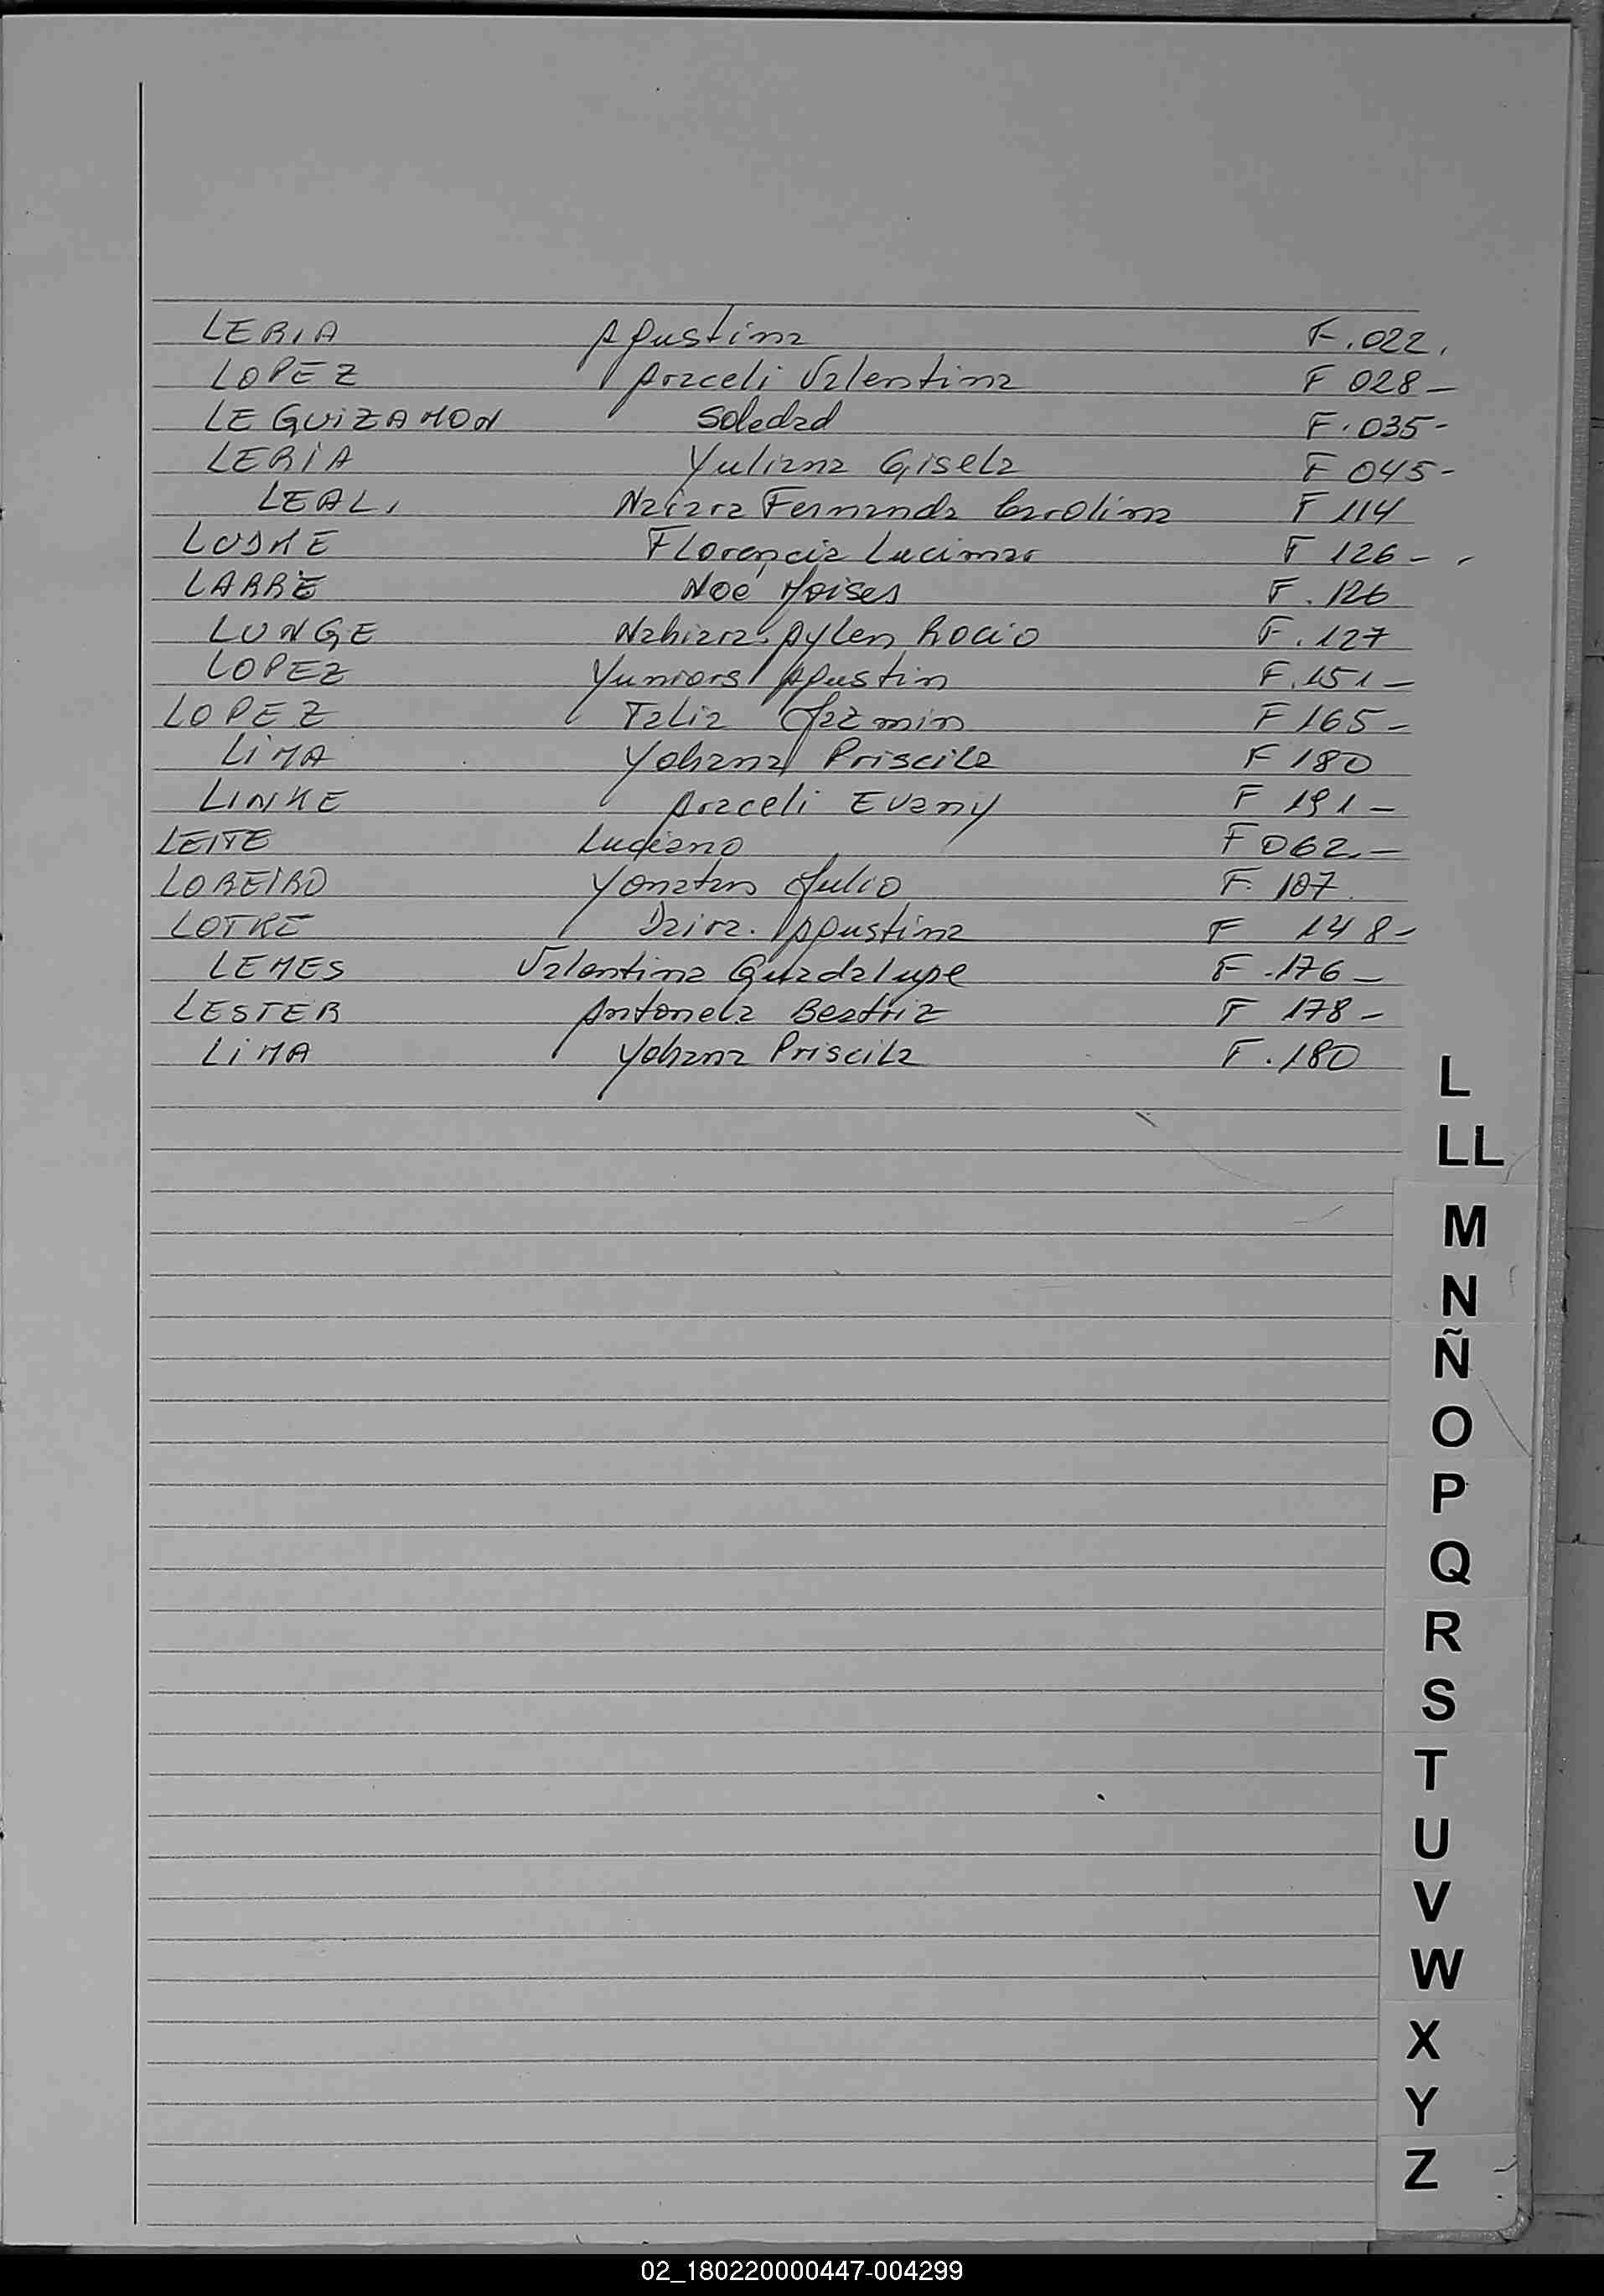 LERIA Agustina F.022.
LOPEZ Araceli Valentina F 028-
LEGUIZAMON Soledad F.035-
LERIA Yuliana Gisela F 045-
LEAL, Naiara Fernanda Carolina F 114
Florencia Lucimar F 126-
LABRE Noé Moises F.126
LUNGE Nahiara Aylen Rocio F.127
LOPEZ Yuniors Agustin F.151-
LOPEZ Talia Jazmin F 165-
LIMA Yohana Priscila F 180
LINKE Araceli Evany F 191-
LEITE Luciano F 062.-
LOREIRO Yonatan Julio F. 107.
LOTKE Daira. Agustina F 148-
LEMES Valentina Guadalupe F.176-
LESTER Antonela Beatriz F 178-
LIMA Yohana Priscila F.180
L
LL
M
N
Ñ
O
P
Q
R
S
T
U
V
W
X
Y
Z
02_180220000447-004299